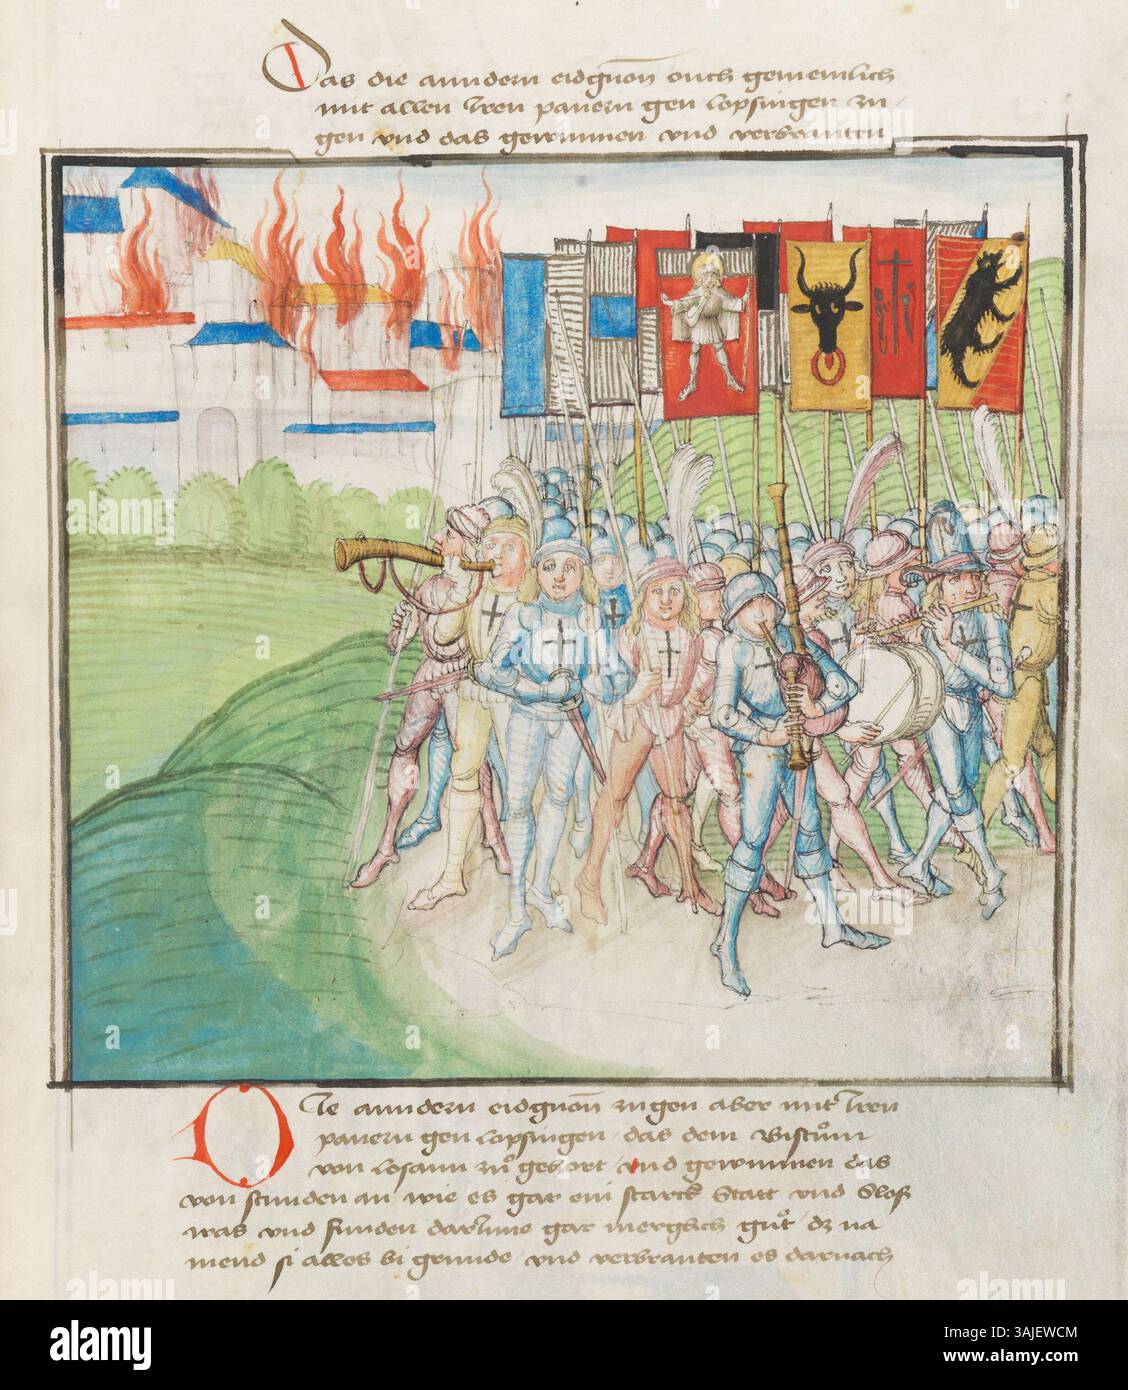 Das die anndern eidgnon ouch gemeinlich
mit allen iren panern gen lopsingen zu
gen vnd das gewunnen vnd verbranten
Die anndern eidgnon zugen aber mit iren
panern gen lopsingen das dem Bistum
von losann zu gehort vnd gewunnen das
von stunden an wie es gar ein starck Statt vnd Sloß
was vnd funden darinne gar merglich gůt dz na
mend si alles bi grunde vnd verbranten es darnach
alamy
Image ID: 3AJEWCM
www.alamy.com